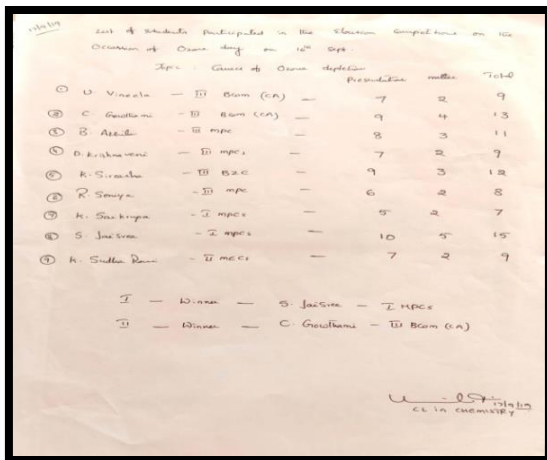 17/9/19
List of students Participated in the Elocution competitions on the
Occassion of Ozone day on 16th Sept.
Topic : Causes of Ozone depletion
Presentation matter Total
① U. Vineela - III Bcom (CA) - 7 2 9
② C. Gowthami - III Bcom (CA) - 9 4 13
③ B. Akhila - III mpc - 8 3 11
④ D. Krishnaveni - III mpcs - 7 2 9
⑤ K. Sireesha - III BZC - 9 3 12
⑥ R. Sowjya - III mpc - 6 2 8
⑦ K. Sai krupa - I mpcs - 5 2 7
⑧ S. Jai Sree - I mpcs - 10 5 15
⑨ K. Sudha Rani - II mecs - 7 2 9
I - Winner - S. Jai Sree - I MPCs
II - Winner - C. Gowthami - III Bcom (CA)
17/9/19
CL in CHEMISTRY